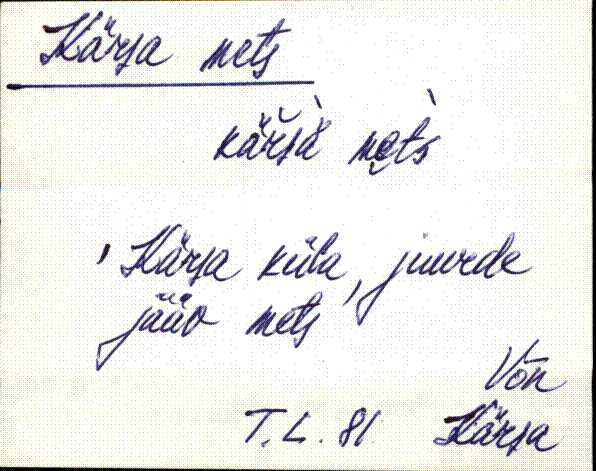 Kärsa mets
kär̆să mе̮t̀s
, Kärsa küla, juurde
jääv mets '
Võn
T. L. 81. Kärsa